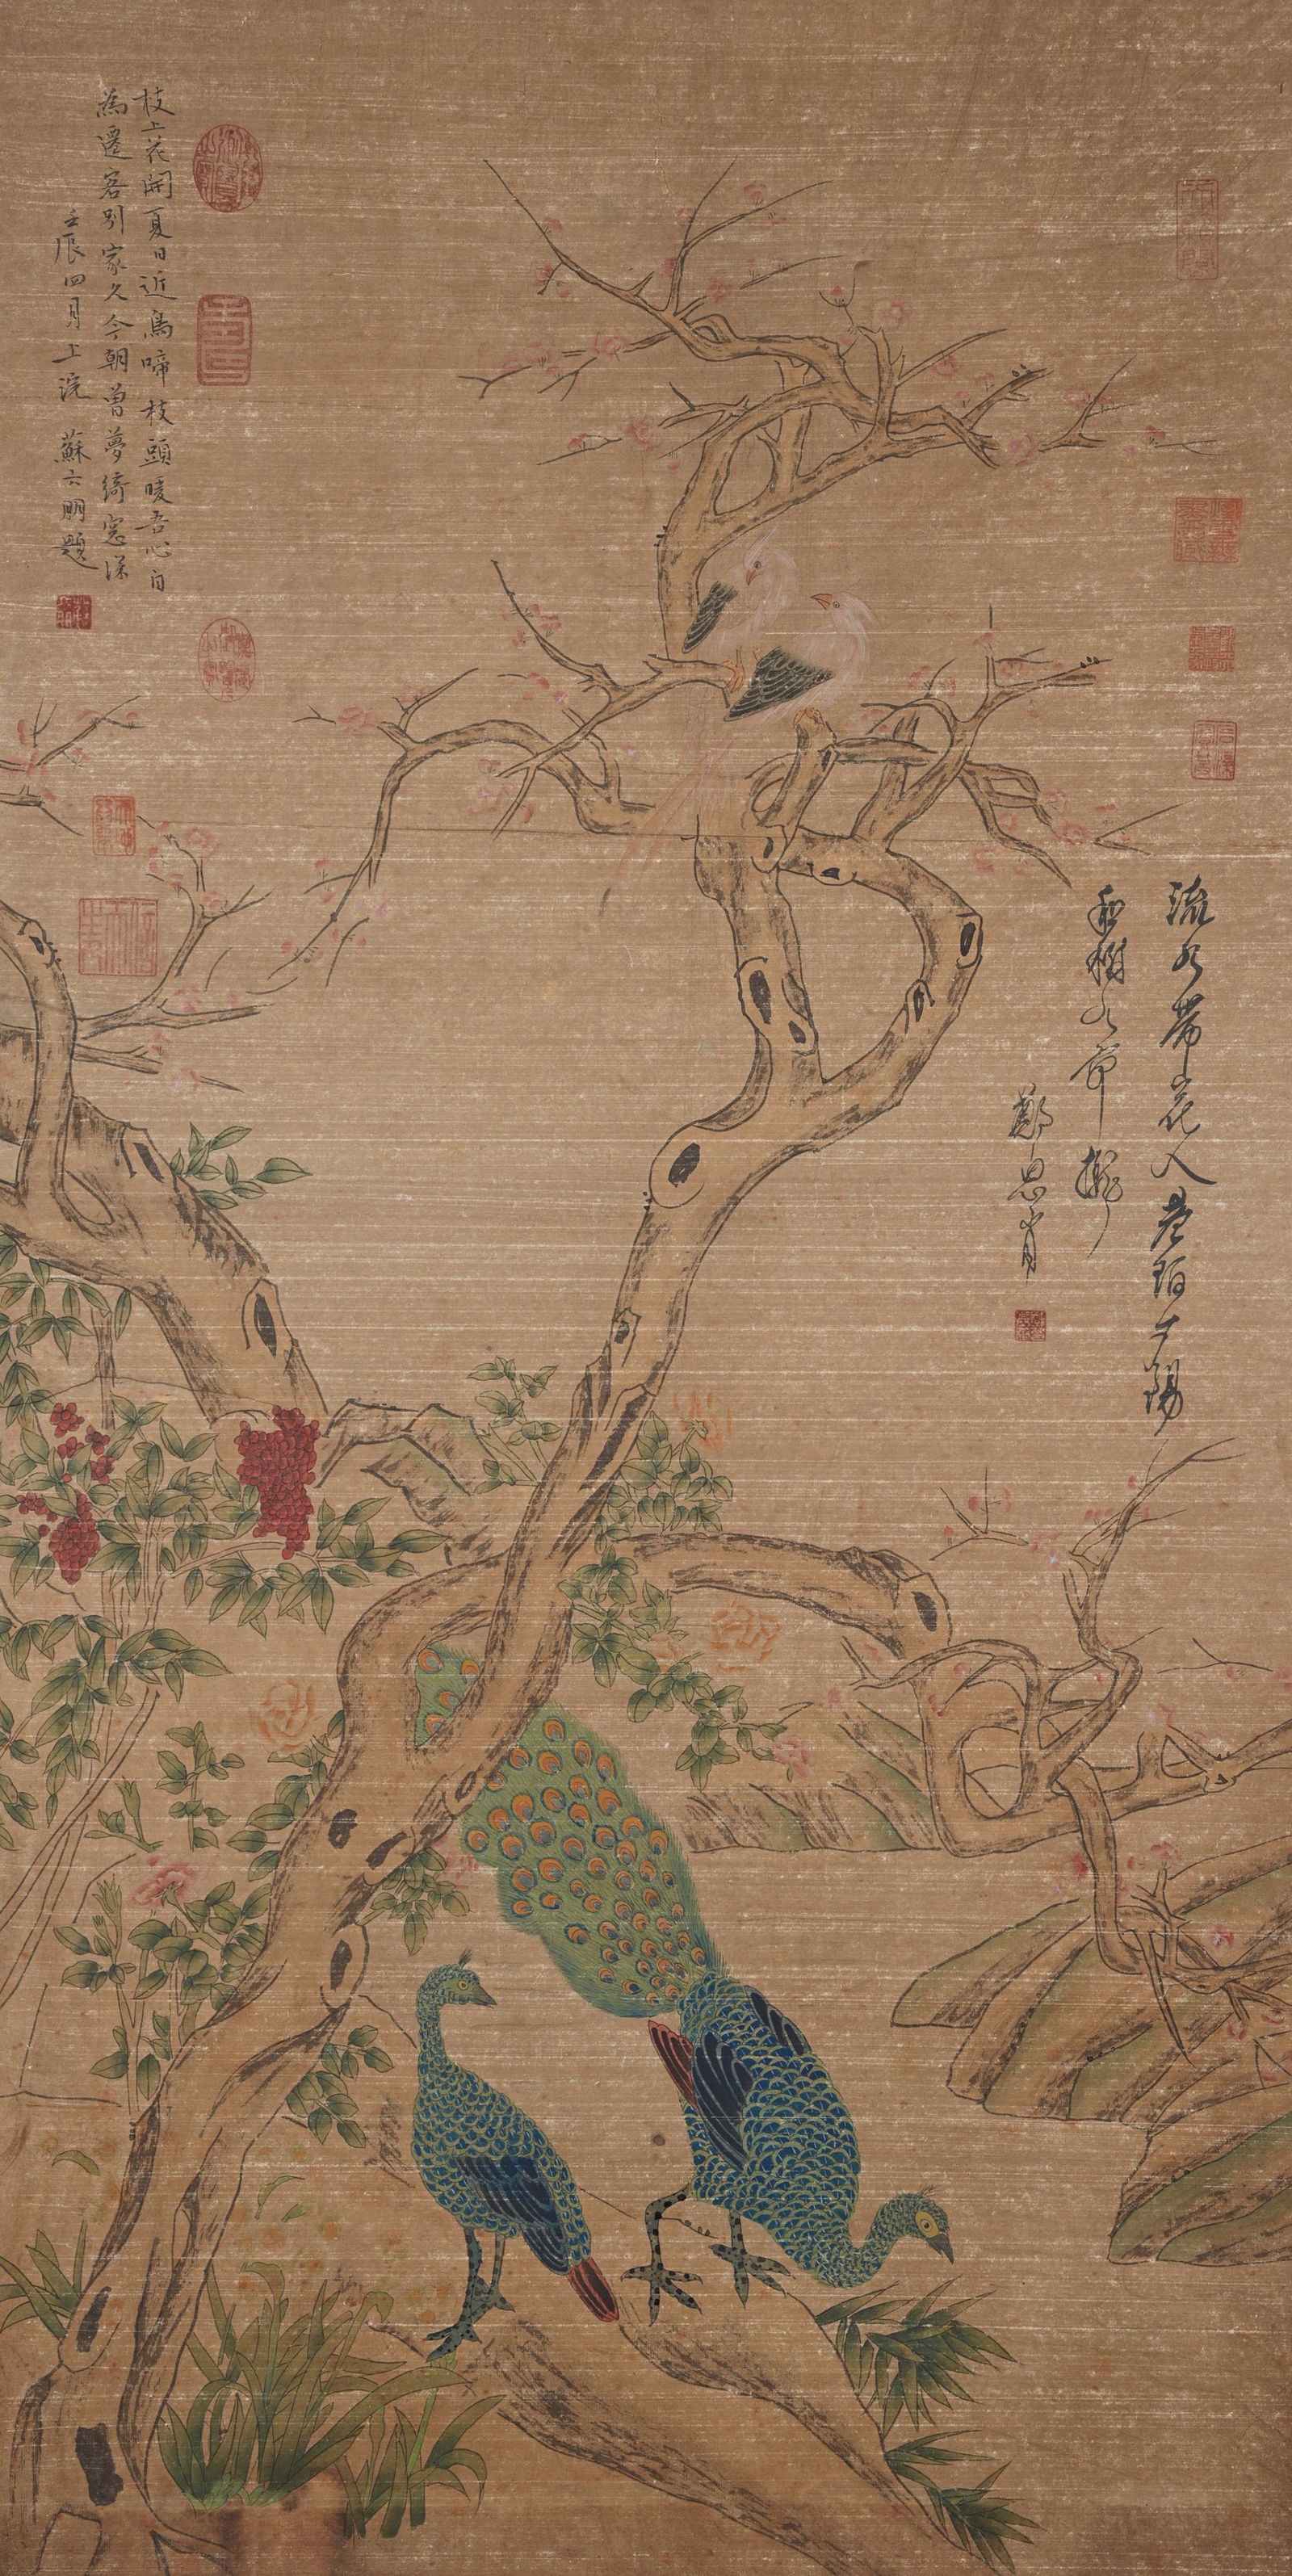 流水帶花入巷陌夕陽
和樹入帘櫳
鄭思肖
枝上花開夏日近鳥啼枝頭暖吾心自
為遷客別家久今朝曾夢綺窓深
壬辰四月上浣 蘇六朋題